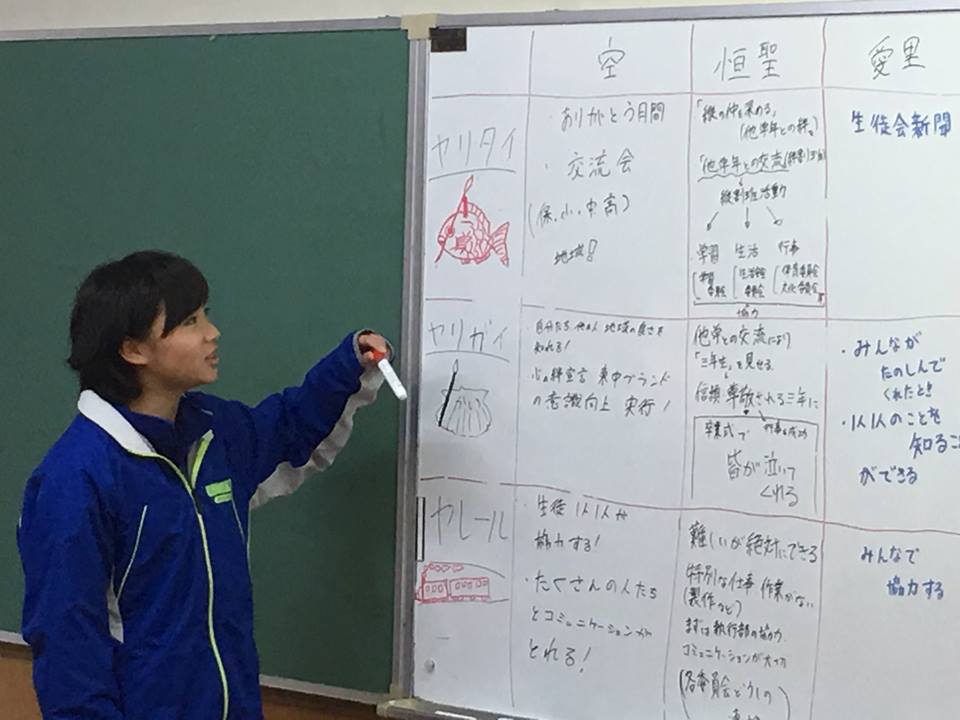 空
恒聖
愛里
ヤリタイ
・ありがとう月間
・交流会
(保、小、中、高)
地域!
「縦の仲を深める」
(他学年との絆。)
「他学年との交流
縦割班活動
学習 生活 行事
学習
委員会
生活
委員会
体育委員会
文化委員会
協力
生徒会新聞
ヤリガイ
かい
自分たち 他の人 地域の良さを
知れる!
心の絆宣言 東中ブランド
の意識向上 実行!
他学との交流により
「三年生」を見せる
信頼・尊敬される三年に
卒業式で 行事も成功
皆が泣いて
くれる
・みんなが
たのしんで
くれたとき!
・1人1人のことを
知るこ
ができる
ヤレール
生徒1人1人が
協力する!
・たくさんの人たち
とコミュニケーションが
とれる!
難しいが絶対にできる
特別な仕事 作業がない
(製作など)
まずは執行部の協力
コミュニケーションが大切
(各委員会どうしの
みんなで
協力する